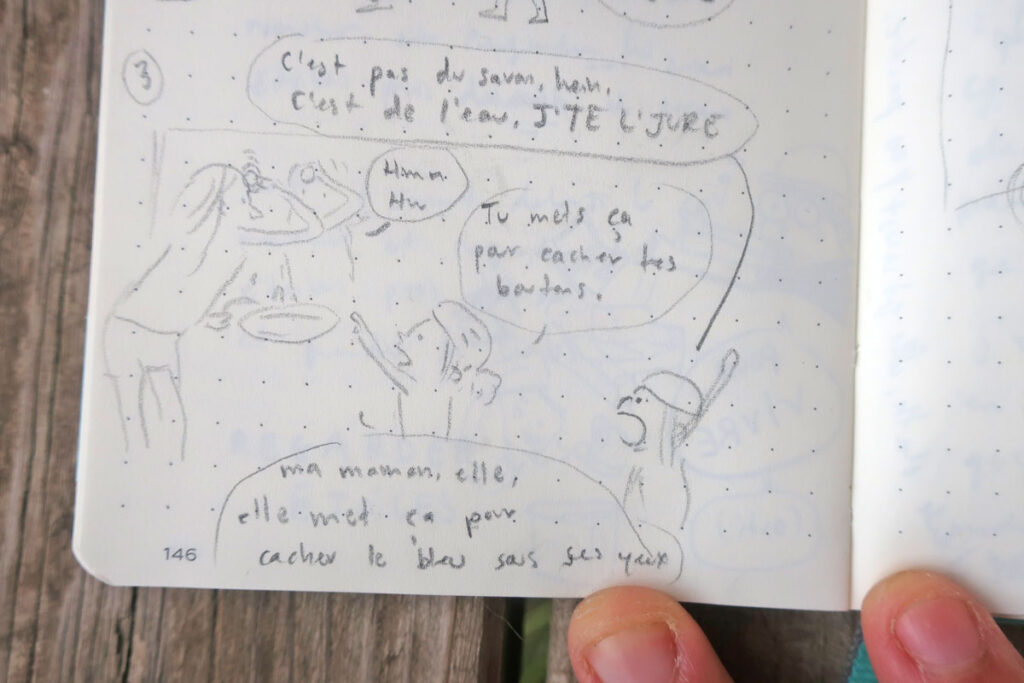 3
C'est pas du savon, hein,
C'est de l'eau, J'TE L'JURE
Hmm
Hm
Tu mets ça
pour cacher tes
boutons.
ma maman, elle,
elle met ça pour
cacher le bleu sous ses yeux
146